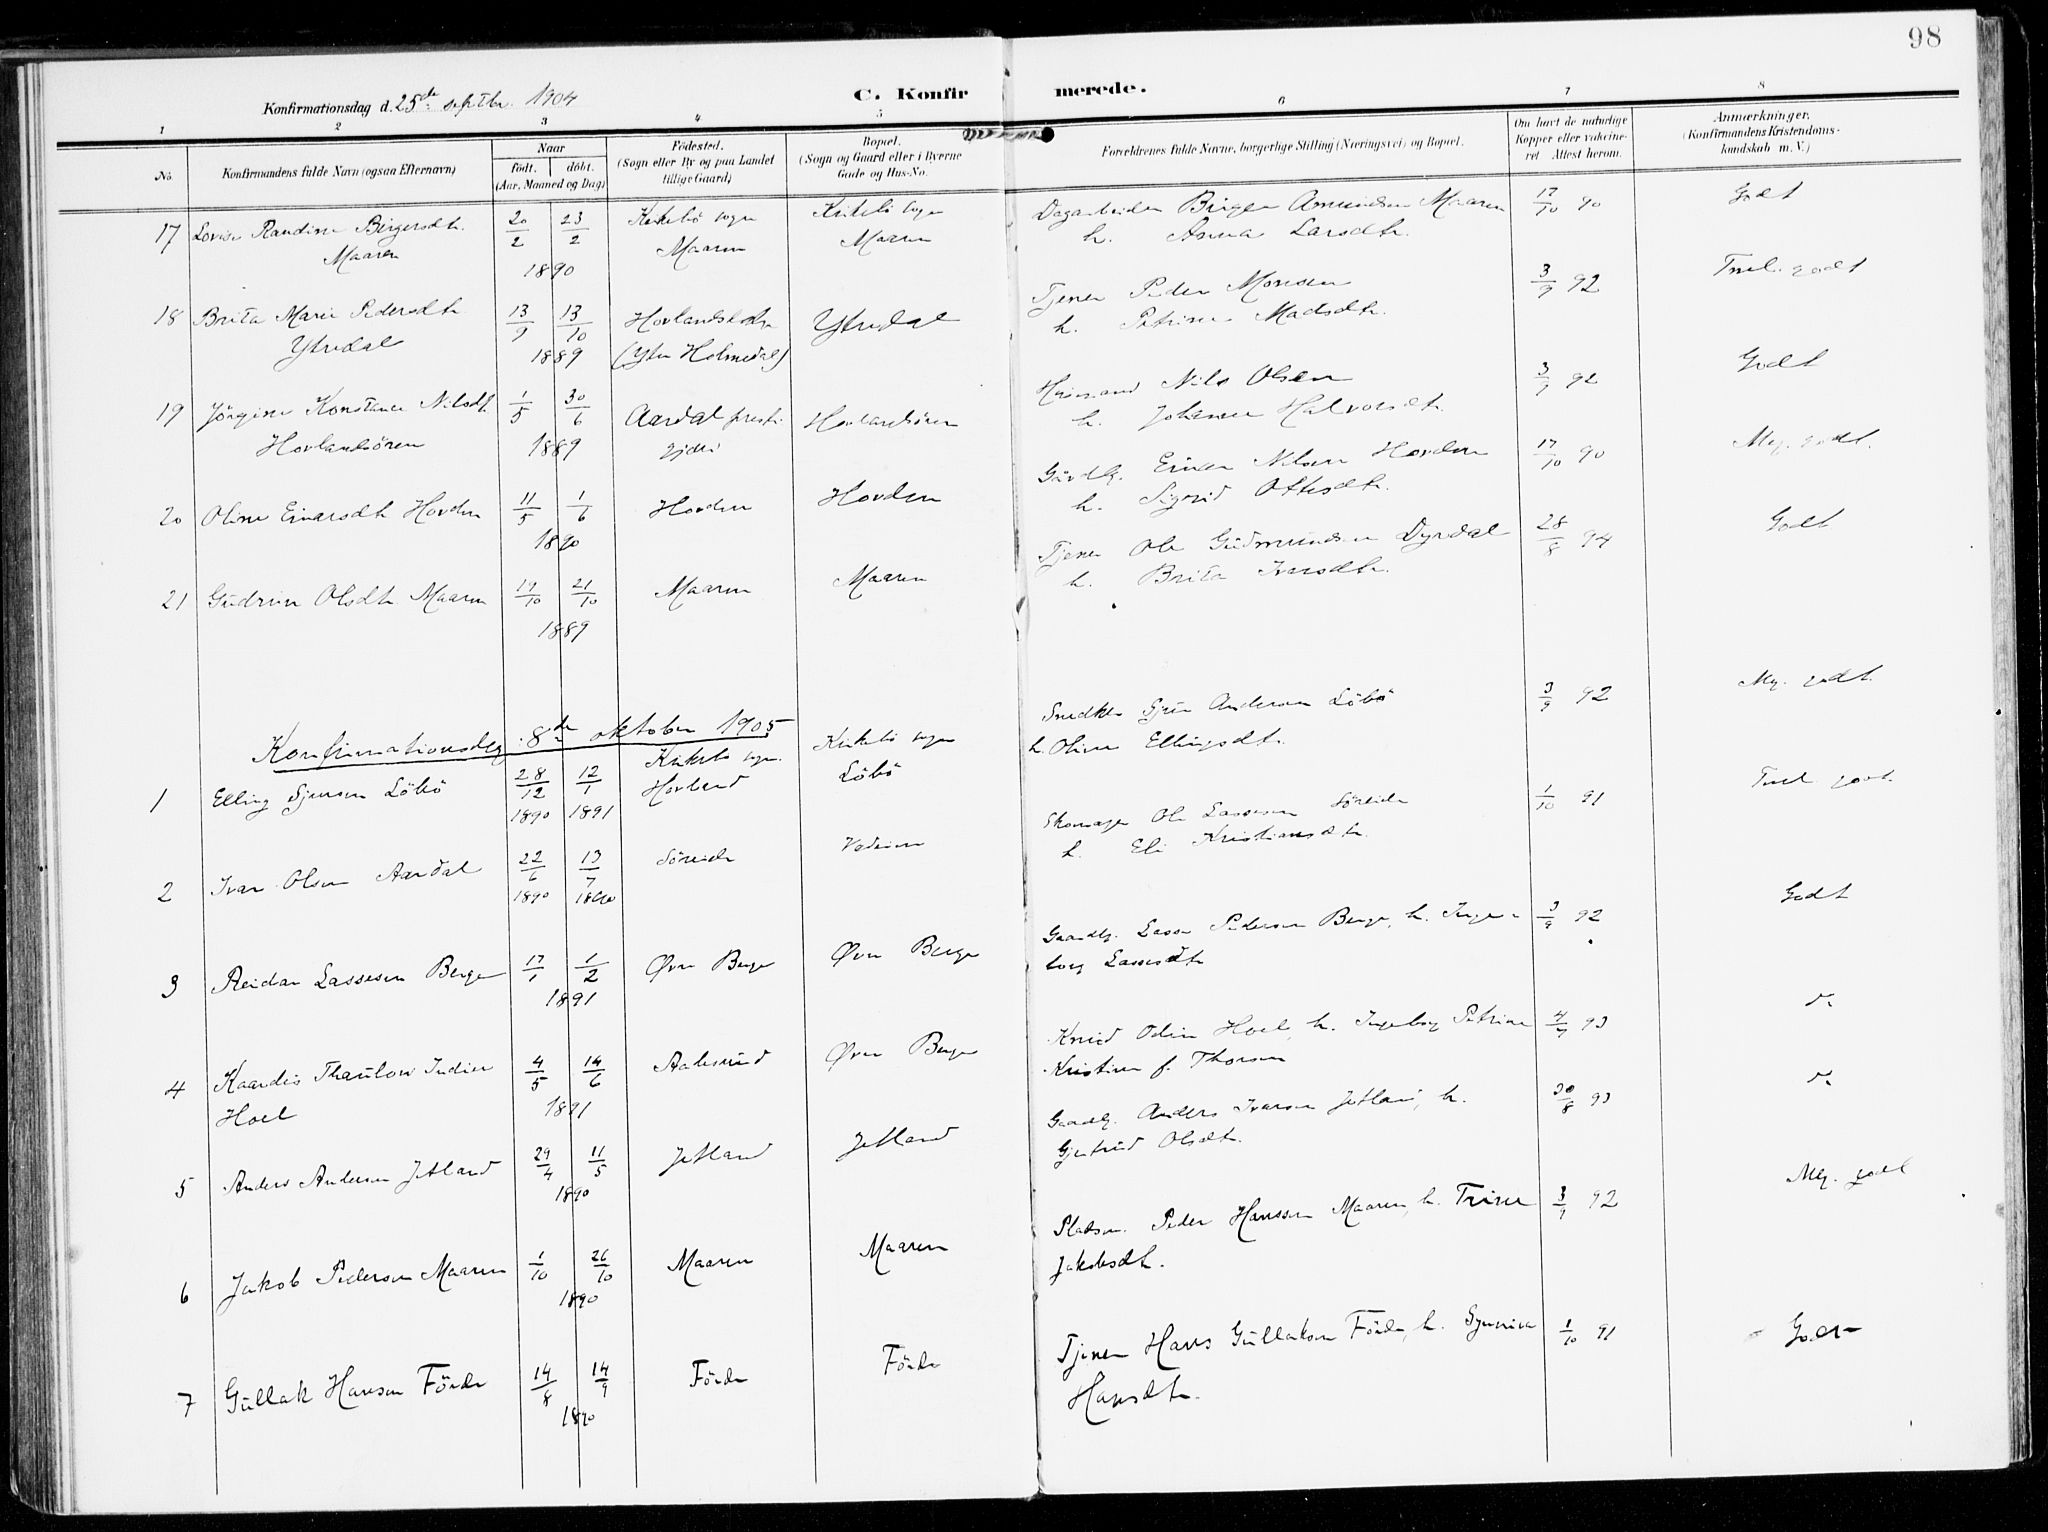 98
C. Konfirmerede.
Konfirmationsdag d. 25de septbr. 1904
1 2 3 4 5 6 7 8
No. Konfirmandens fulde Navn (ogsaa Efternavn) Naar født. døbt. (Aar, Maaned og Dag) Fødested. (Sogn eller By og paa Landet tillige Gaard) Bopæl. (Sogn og Gaard eller i Byerne Gade og Hus-No. Forældrenes fulde Navne, borgerlige Stilling (Næringsvei) og Bopæl. Om havt de naturlige Kopper eller vakcineret. Attest herom. Anmærkninger. (Konfirmandens Kristendomskundskab m. V.)
17 Lovise Randine Birgersdtr. 20/2 23/2 Kirkebö sogn Kirkebö sogn Dagarbeider Birger Amundsen Maaren 17/10 90 Godt
Maaren 1890 Maaren Maaren h. Anna Larsdtr.
18 Brita Marie Pedersdtr 13/9 13/10 Ytredal Tjener Peder Monsen 3/9 92 Tvel. godt
Ytredal 1889 (Ytre Holmedal) h. Petrine Madsdtr.
19 Jörgine Konstance Nilsdtr. 1/5 30/6 Aardal preste Hovlandsören Husmand Nils Olsen 3/9 92 Godt
Hovlandsören 1889 gjeld h. Johanne Halvorsdtr.
20 Oline Einarsdtr Hovden 11/5 1/6 Hovden Hovden Gårdbr. Einar Nilsen Hovden 17/10 90 Meg. godt.
1890 h. Sigrid Ottesdtr.
21 Gudrun Olsdtr Maaren 19/10 21/10 Maaren Maaren Tjener Ole Gudmundsen Dyrdal 28/8 94 Godt
1889 h. Brita Ivarsdtr.
Konfirmationsdag 8de oktober 1905
1 Elling Sjursen Löbö 28/12 12/1 Kirkebö sogn. Kirkebö sogn Snedker Sjur Andersen Löbö 3/9 92 Meg. godt.
1890 1891 Hovland Löbö h. Oline Ellingsdtr.
2 Ivar Olsen Aardal 22/6 13/7 Söreide Vadeim Skomager Ole Lassesen Söreide 1/10 91 Tvel. godt.
1890 1890 h. Eli Kristiansdtr.
3 Reidar Lassesen Berge 17/1 1/2 Øvre Berge Øvre Berge Gaardbr. Lasse Pedersen Berge, h. Inge- 3/9 92 Godt
1891 borg Lassesdtr
4 Kaardis Thaulow Indier 4/5 14/6 Aalesund Øvre Berge Knud Odin Hoel, h. Ingeborg Petrine 4/9 93 do
Hoel 1891 Kristine f. Thorsen
5 Anders Andersen Jetland 29/4 11/5 Jetland Jetland Gaardbr. Anders Ivarsen Jetland, h. 30/8 93 do
1890 Gjertrud Olsdtr.
6 Jakob Pedersen Maaren 1/10 26/10 Maaren Maaren Pladsm. Peder Hanssen Maaren, h. Trine 3/9 92 Meg. godt
1890 Jakobsdtr.
7 Gullak Hansen Förde 14/8 14/9 Förde Förde Tjener Hans Gullaksen Förde, h. Synneva 1/10 91 Godt
1890 Hansdtr.